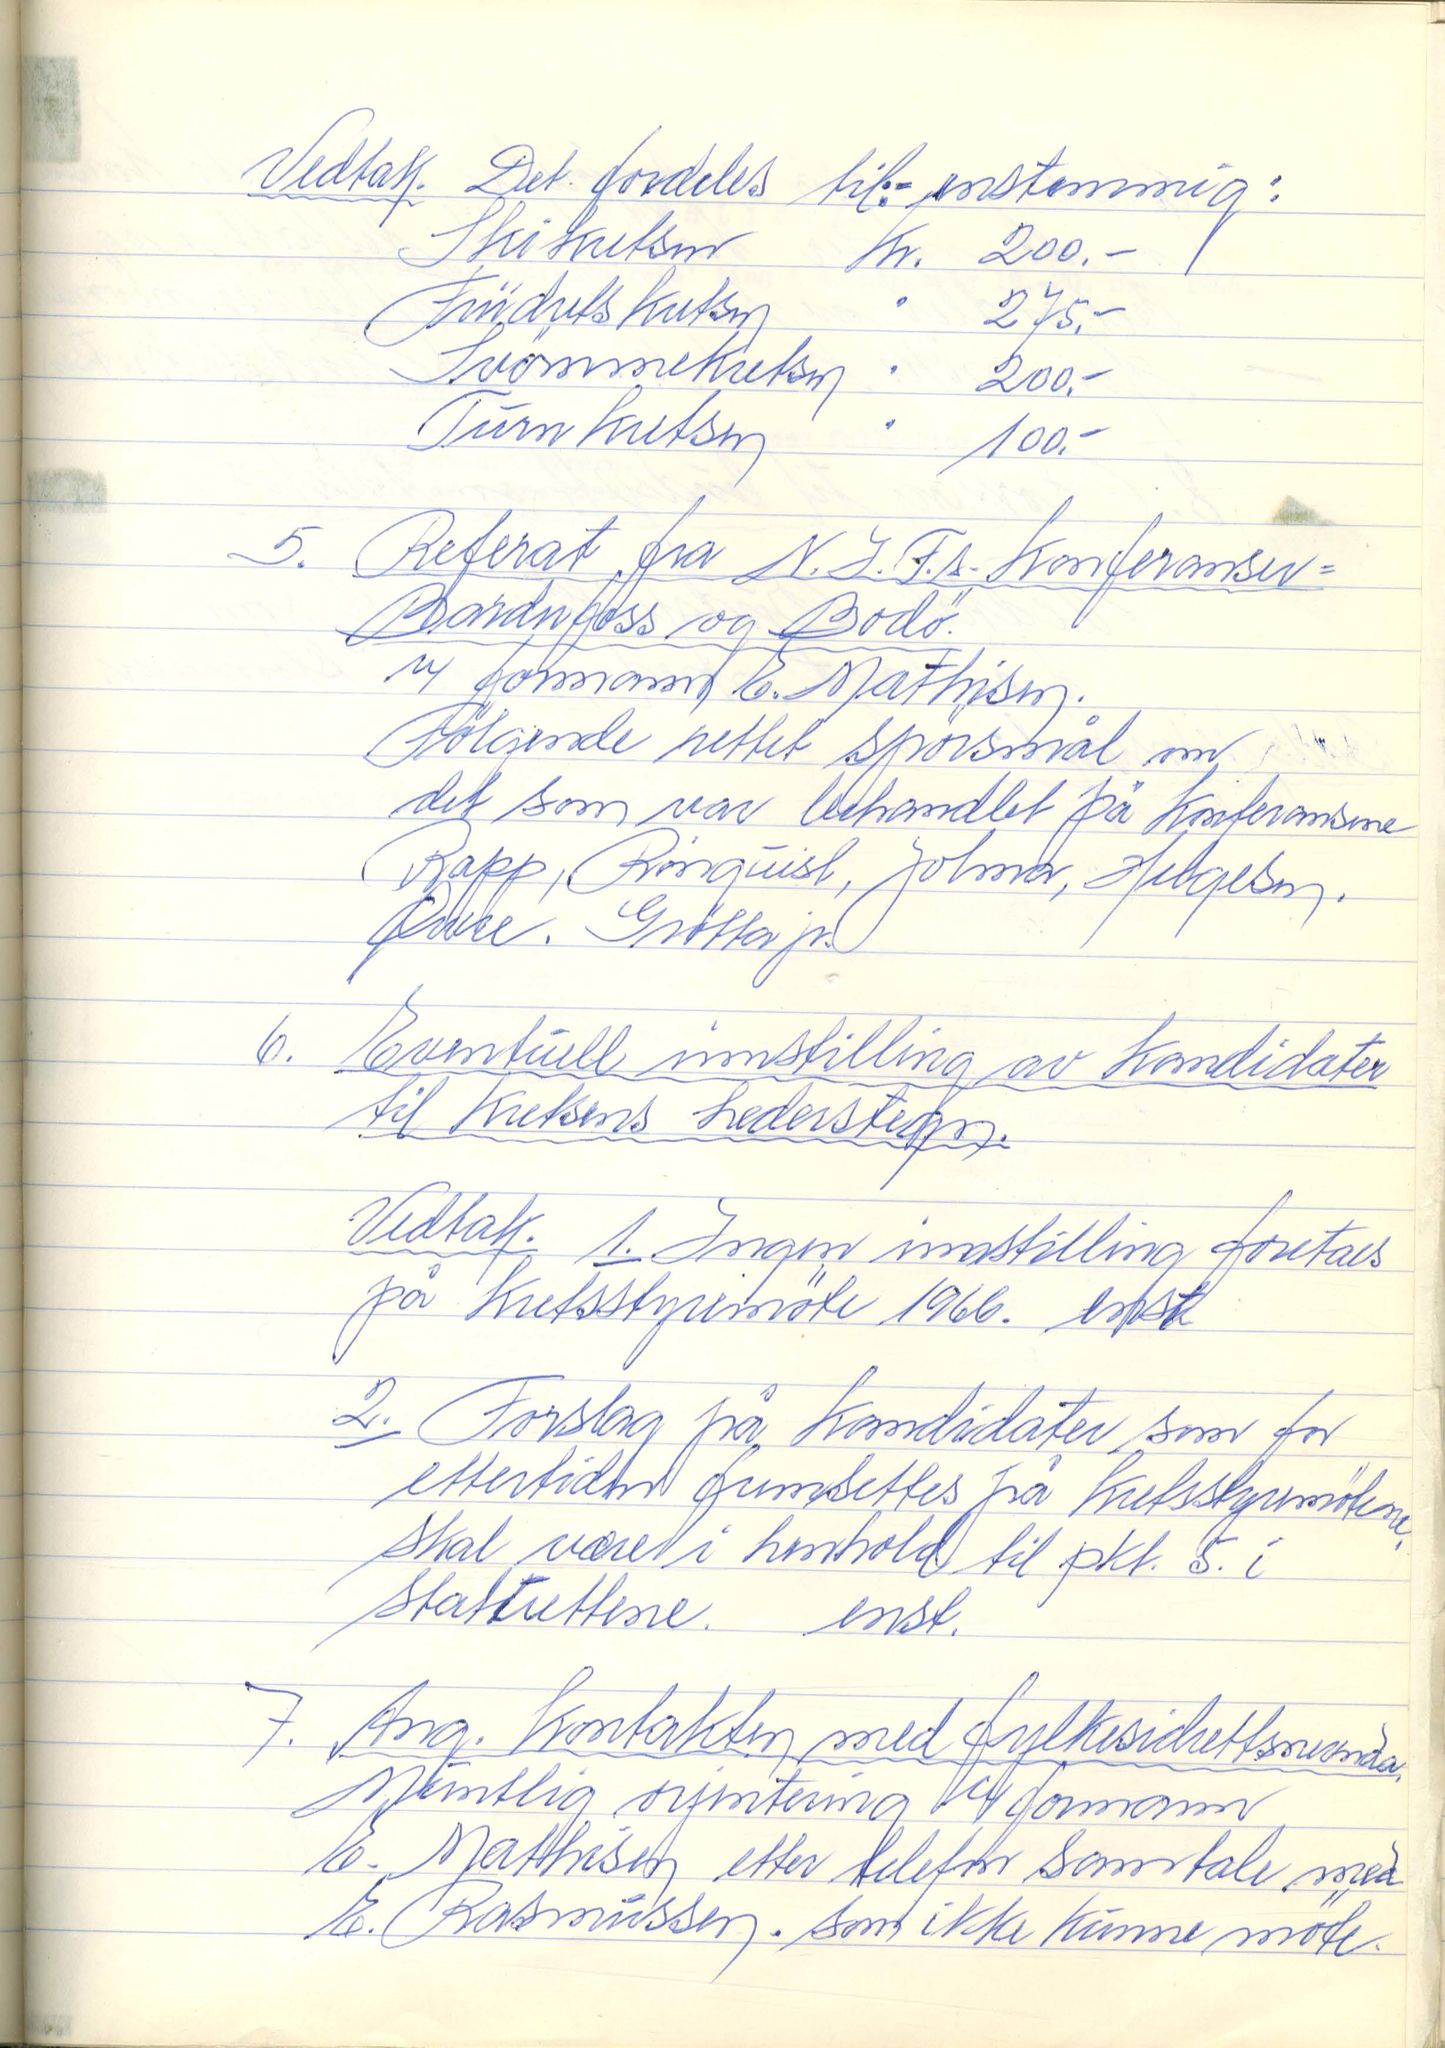 Vedtak. Det fordeles til:- enstemmig:
Skikretsen Kr. 200.-
Friidrettskretsen " 275.-
Svömmekretsen " 200.-
Turnkretsen " 100.-
5. Referat fra N.I.F.s. Konferanser =
Bardufoss og Bodö.
v/ formann E. Mathisen.
Følgende rettet spörsmål om
det som var behandlet på konferansene
Rapp, Rönquist, Johna, Helgesen.
Grötta jr.
6. Eventuell innstilling av kandidater
til kretsens hederstegn.
Vedtak. 1. Ingen innstilling foretaes
på kretsstyremöte 1966. enst
2. Forslag på kandidater som for
ettertiden fremsettes på kretsstyremötene,
skal være i henhold til pkt. 5. i
statuettene. enst.
7. Ang. kontakten med fylkesidrettsnemnda.
Muntlig orjentering v/ formann
E. Mathisen etter telefon samtale med
E. Rasmussen. som ikke kunne möte.